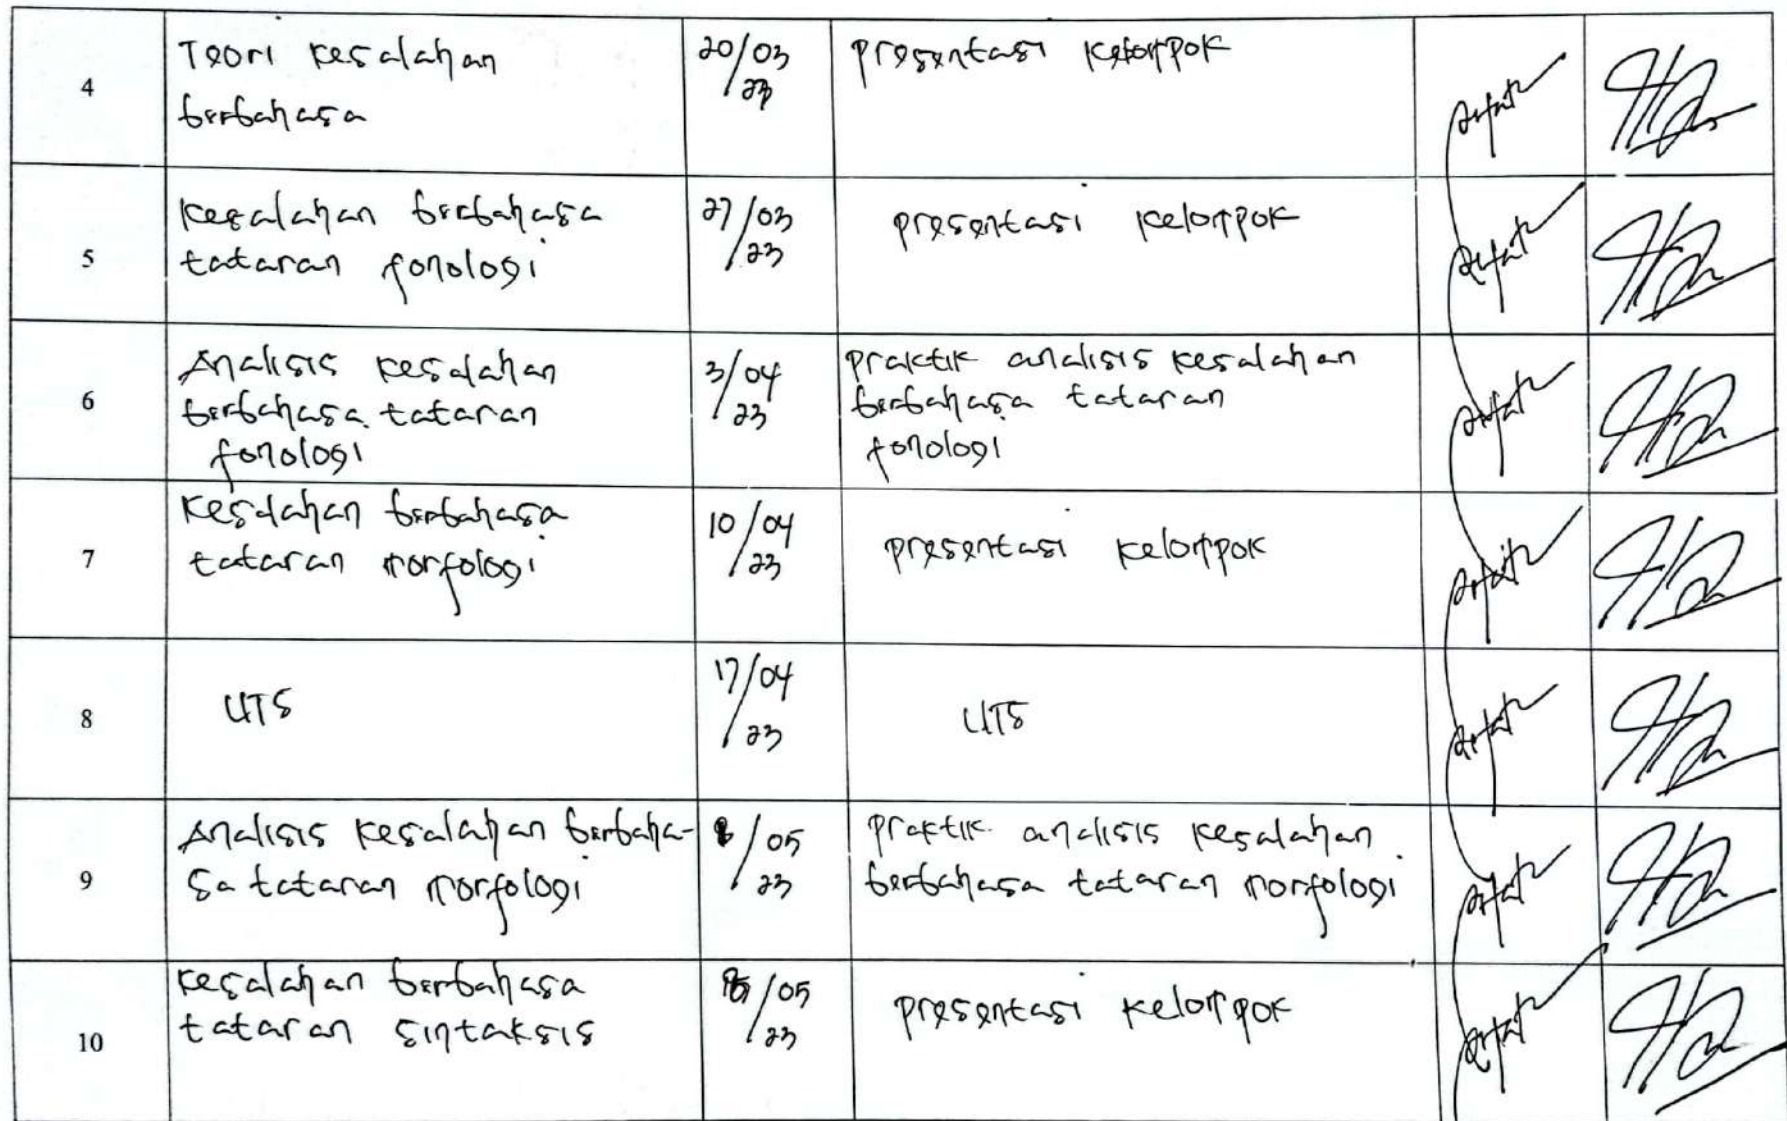 4
Teori kesalahan
berbahasa
20/03
/23
presentasi kelompok
5
kesalahan berbahasa
tataran fonologi
27/03
/23
presentasi kelompok
6
Analisis kesalahan
berbahasa tataran
fonologi
3/04
/23
praktik analisis kesalahan
berbahasa tataran
fonologi
7
kesalahan berbahasa
tataran morfologi
10/04
/23
presentasi kelompok
8
UTS
17/04
/23
UTS
9
Analisis kesalahan berbaha-
sa tataran morfologi
8/05
/23
praktik analisis kesalahan
berbahasa tataran morfologi
10
kesalahan berbahasa
tataran sintaksis
15/05
/23
presentasi kelompok